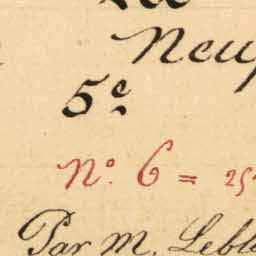 Neuf
5e.
No. 6 = 25
Par M. Lebl